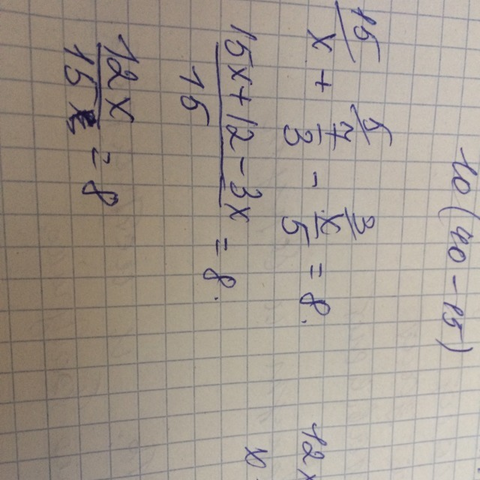 10(40-15)
15/ 5/ 3/
x + 4/3 - x/5 = 8.
(15x + 12 - 3x)/15 = 8.
12x/15 = 8
12x
x